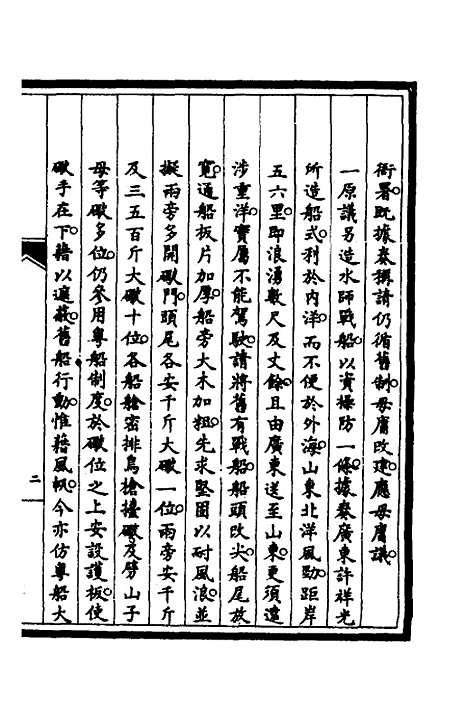 衙署既據奏稱請仍循舊制毋庸改建應毋庸議
一原議另造水師戰船以資操防一條據奏廣東許祥光
所造船式利於內洋而不便於外海山東北洋風勁距岸
五六里即浪湧數尺及丈餘且由廣東送至山東更須遠
涉重洋實屬不能駕駛請將舊有戰船船頭改尖船尾放
寬通船板片加厚船旁大木加粗先求堅固以耐風浪並
擬兩旁多開礮門頭尾各安千斤大礮一位兩旁安千斤
及三五百斤大礮十位各船艙密排鳥槍擡礮及劈山子
母等礮多位仍參用粵船制度於礮位之上安設護板使
礮手在下藉以遮蔽舊船行動惟藉風帆今亦仿粵船大
二